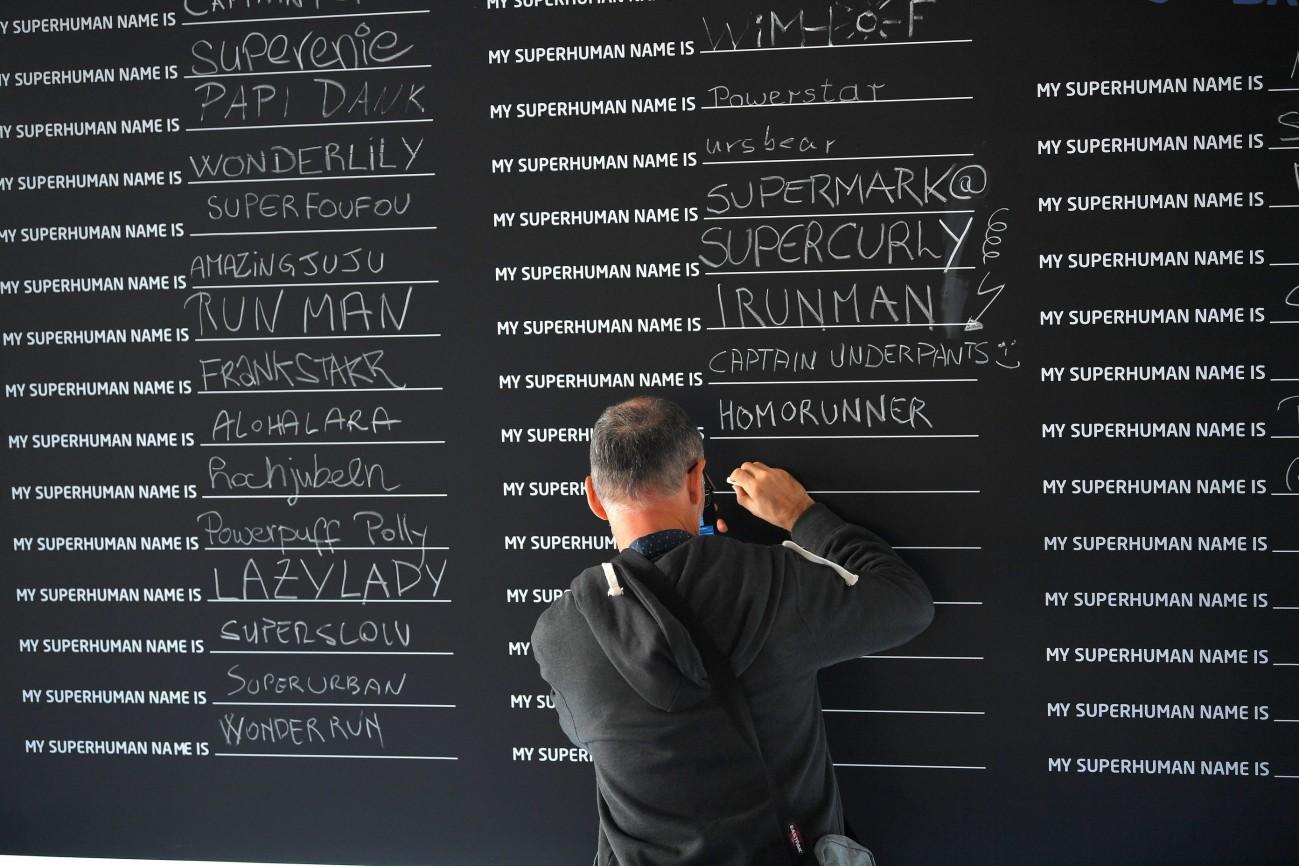 MY SUPERHUMAN NAME IS
MY SUPERHUMAN NAME IS Superenie
MY SUPERHUMAN NAME IS PAPI DANK
MY SUPERHUMAN NAME IS WONDERLILY
MY SUPERHUMAN NAME IS SUPERFOUFOU
MY SUPERHUMAN NAME IS AMAZINGJUJU
MY SUPERHUMAN NAME IS RUN MAN
MY SUPERHUMAN NAME IS FRANKSTARR
MY SUPERHUMAN NAME IS ALOHALARA
MY SUPERHUMAN NAME IS Rochjubeln
MY SUPERHUMAN NAME IS Powerpuff Polly
MY SUPERHUMAN NAME IS LAZYLADY
MY SUPERHUMAN NAME IS SUPERSLOW
MY SUPERHUMAN NAME IS SUPERURBAN
MY SUPERHUMAN NAME IS WONDERRUN
MY SUPERHUMAN NAME IS
MY SUPERHUMAN NAME IS
MY SUPERHUMAN NAME IS Powerstar
MY SUPERHUMAN NAME IS ursbear
MY SUPERHUMAN NAME IS SUPERMARK@
MY SUPERHUMAN NAME IS SUPERCURLY
MY SUPERHUMAN NAME IS IRUNMAN
MY SUPERHUMAN NAME IS CAPTAIN UNDERPANTS
MY SUPERH HOMORUNNER
MY SUPER
MY SUPERHU
MY SUP
MY
MY SU
MY SUPER
MY SUPERHUMAN NAME IS
MY SUPERHUMAN NAME IS
MY SUPERHUMAN NAME IS
MY SUPERHUMAN NAME IS
MY SUPERHUMAN NAME IS
MY SUPERHUMAN NAME IS
MY SUPERHUMAN NAME IS
MY SUPERHUMAN NAME IS
MY SUPERHUMAN NAME IS
MY SUPERHUMAN NAME IS
MY SUPERHUMAN NAME IS
MY SUPERHUMAN NAME IS
MY SUPERHUMAN NAME IS
EASTPAK